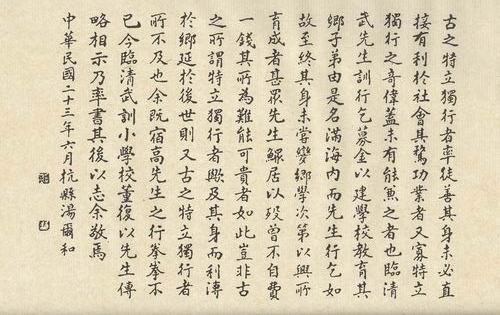 古之特立獨行者率徒善其身未必直
接有利於社會其騖功業者又寡特立
獨行之奇偉蓋未有能兼之者也臨清
武先生訓行乞募金以建學校教育其
鄉子弟由是名滿海內而先生行乞如
故至終其身未嘗變鄉學次第以興所
育成者甚眾先生鰥居以歿曾不自費
一錢其所為難能可貴者如此豈非古
之所謂特立獨行者歟及其身而利溥
於鄉延於後世則又古之特立獨行者
所不及也余既宿高先生之行拳拳不
已今臨清武訓小學校董復以先生傳
略相示乃率書其後以志余敬焉
中華民國二十三年六月杭縣湯爾和